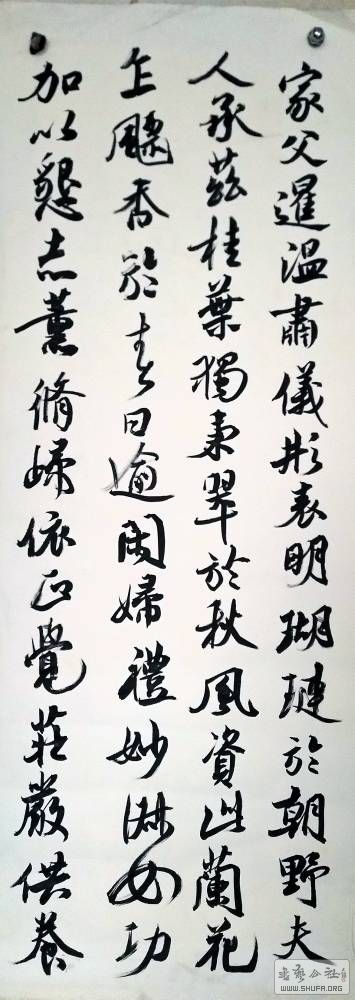 家父暹溫肅儀形表明瑚璉於朝野夫
人承茲桂葉獨秉翠於秋風資此蘭花
乍飄香於春日逾閑婦禮妙淋女功
加以懇志薰脩歸依正覺莊嚴供養
书艺公社
WWW.SHUFA.ORG